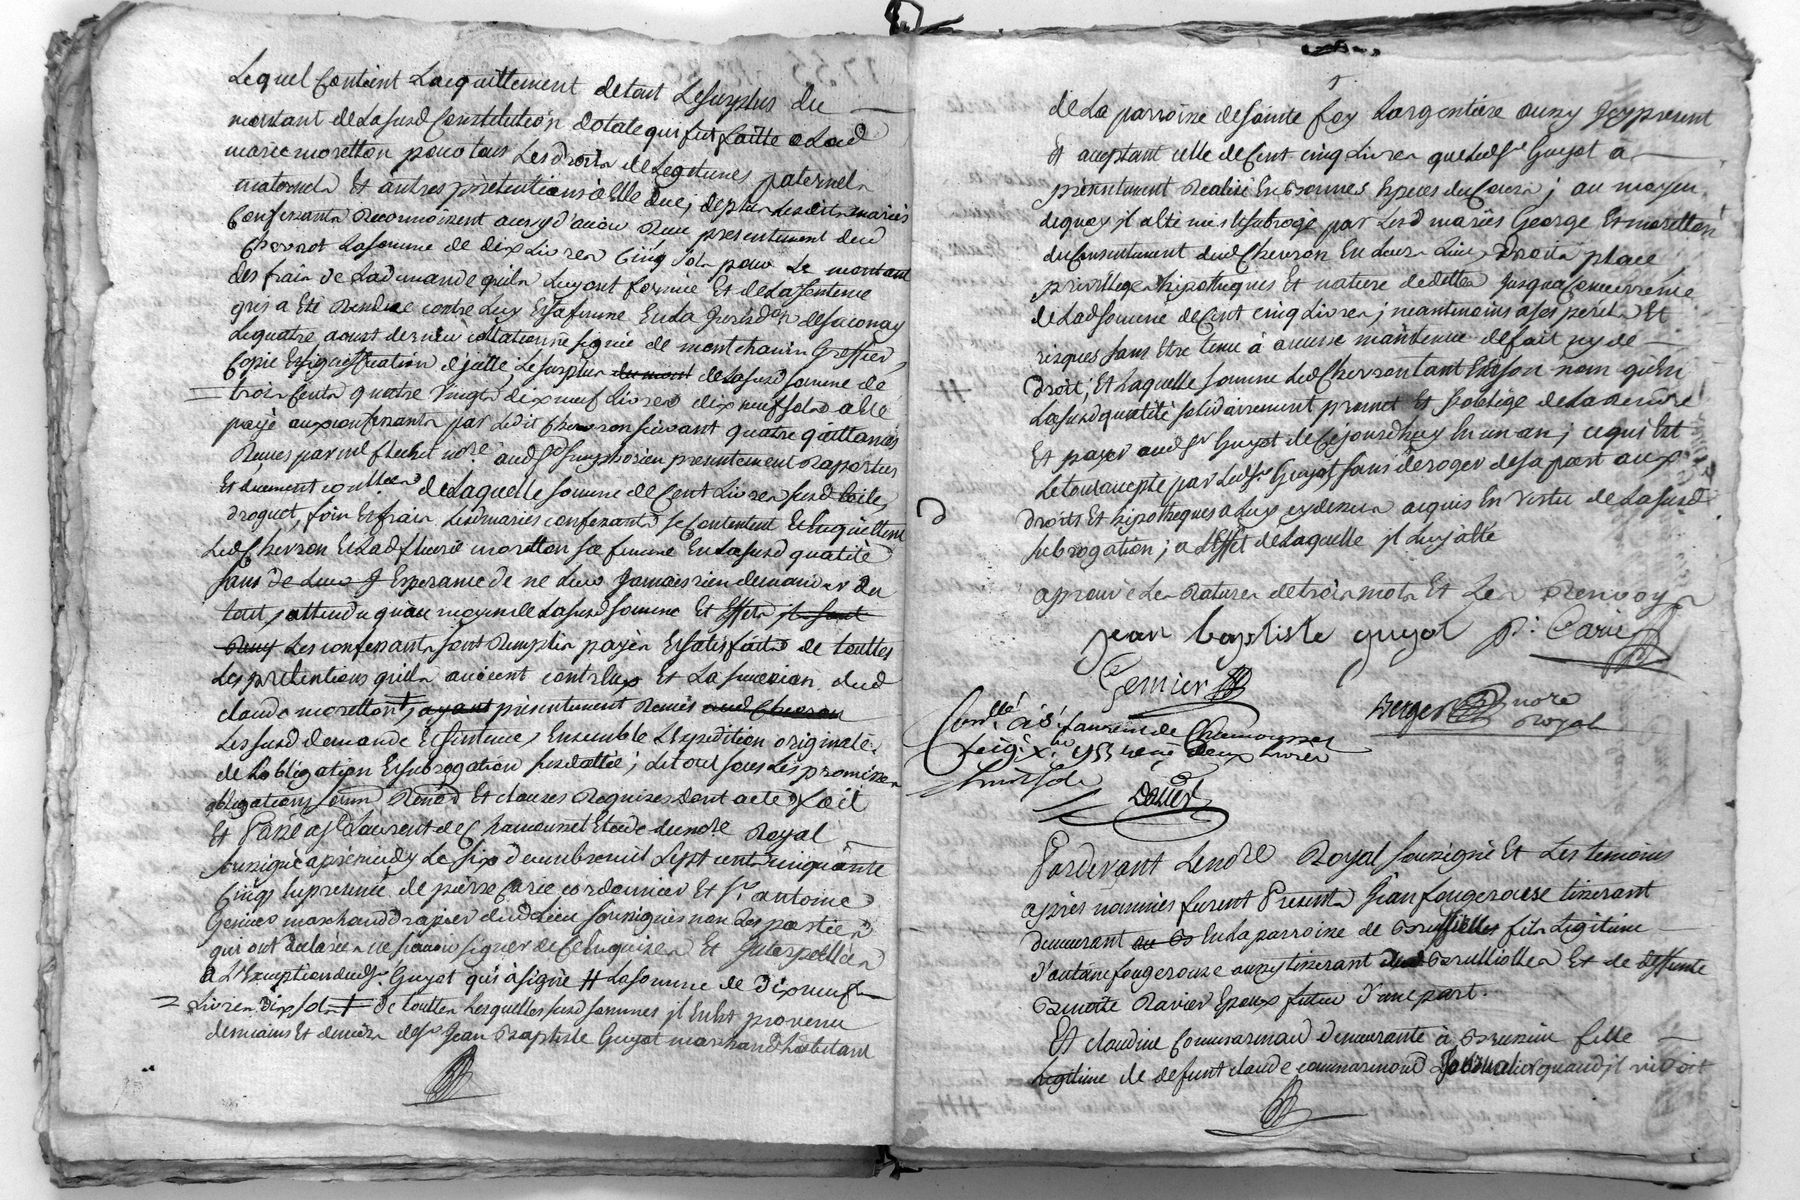 Lequel Contient Lacquittement detout Lesurplus du
montant deLasusd Constitution dotale qui fut faitte a Lad
marie moretton pour tous Les droits de Legitimes paternels
maternels Et autres pretentions à Elle dues, deplus Lesdits mariés
Confessants Reconnoissent aussy d'avoir Receu presentement dud
Chevron Lasomme de dix Livres Cinq sols pour Le montant
des frais de Lademande quils Luy ont formée Et deLa sentence
quis a Eté Rendue contre Luy Et sa femme En La
Lequatre aoust dernier signée de montchanin Greffier
Copie Et signiffication Le surplus du mont deLasusd somme de
trois Cents quatre vingts dix neuf Livres dix neuf sols a été
payé aux confessants par Ledit Chevron suivant quatre quittances
Receues par me flechet nore aud St Simphorien presentement Raportées
Et deLaquelle somme de Cent Livres susd toiles
droguet, foin Et frais Lesd mariés confessants se Contentent Et En quittent
Led Chevron Et Lad moretton sa femme En Lasusd qualité
sans de Leur Esperance de ne Leur Jamais rien demander du
tout, attendu qu'au moyen de Lasusd somme Et Effets il sont
Les confessants sont Remplis payés Et satisfaits de touttes
Les pretentions quils avoient contre Eux Et La succession dud
claude moretton, ayant presentement Remis aud Chevron
Les susd demande Et sentence, Ensemble L'Expedition originale
de Lobligation Et subrogation susdattée; Le tout sous Les promesses
obligations Renond Et clauses Requises dont acte, fait
Et Passé a St Laurent de Chamousset Etude dunore Royal
soussigné apresmidy Le six decembre mil sept cent cinquante
Cinq En presence de pierre Carie cordonnier Et Sr antoine
Genier marchand drapier dud Lieu soussignés non Les parties
qui ont declaré ne scavoir signer de ce Enquises Et Interpellées
a L'Exception dud sr Guyot qui a signé H La somme de Dix neuf
Livres Dix sols † De touttes Lesquelles susd sommes il En Est provenu
des mains Et deniers de sr Jean Baptiste Guyot marchand habitant
de La parroisse de Sainte foy Largentiere aussy Icy present
Et acceptant celle de Cent cinq Livres que Led sr Guyot a
presentement Realisé En bonnes Especes du Cours; au moyen
de quoy il a Eté mis Et subrogé par Lesd mariés George Et moretton
du Consentement dud Chevron En Leurs Lieu, Droits place,
privilleges hipotheques Et nature de dettes Jusqua Concurrence
de Lad somme de Cent cinq Livres; neantmoins a ses perils Et
risques sans Etre tenu à aucune maintenue de fait ny de
Droit; Et Laquelle somme Led Chevron tant En son nom qu'En
La susd qualité solidairement promet Et s'oblige de La rendre
Et payer aud sr Guyot de Cejourdhuy En un an; ce qui Est
Le tout accepté par Led sr Guyot sans deroger de sa part aux
droits Et hipotheques a Luy cy dessus acquis En vertu de La susd
subrogation; a L'Effet de Laquelle il Luy a Eté
aprouvé Les Ratures de trois mots Et Les Renvoys
jean baptiste guyot P. Carie
Genier
Berger nore
Royal
Conllé à St Laurent de Chamousset
Le 19 xbre 1755 receu deux Livres
huit sols
Pardevant Lenore Royal soussigné Et Les temoins
après nommés furent Presents Jean fougerouse tisserant
demeurant En La parroisse de Brullioles fils Legitime
d'antoine fougerouse aussy tisserant dud Brullioles Et de deffunte
Benoite Ravier Epoux futur d'une part.
Et claudine Commarmond demeurante à Brussieu fille
Legitime de defunt claude commarmond Journalier quand il vivoit